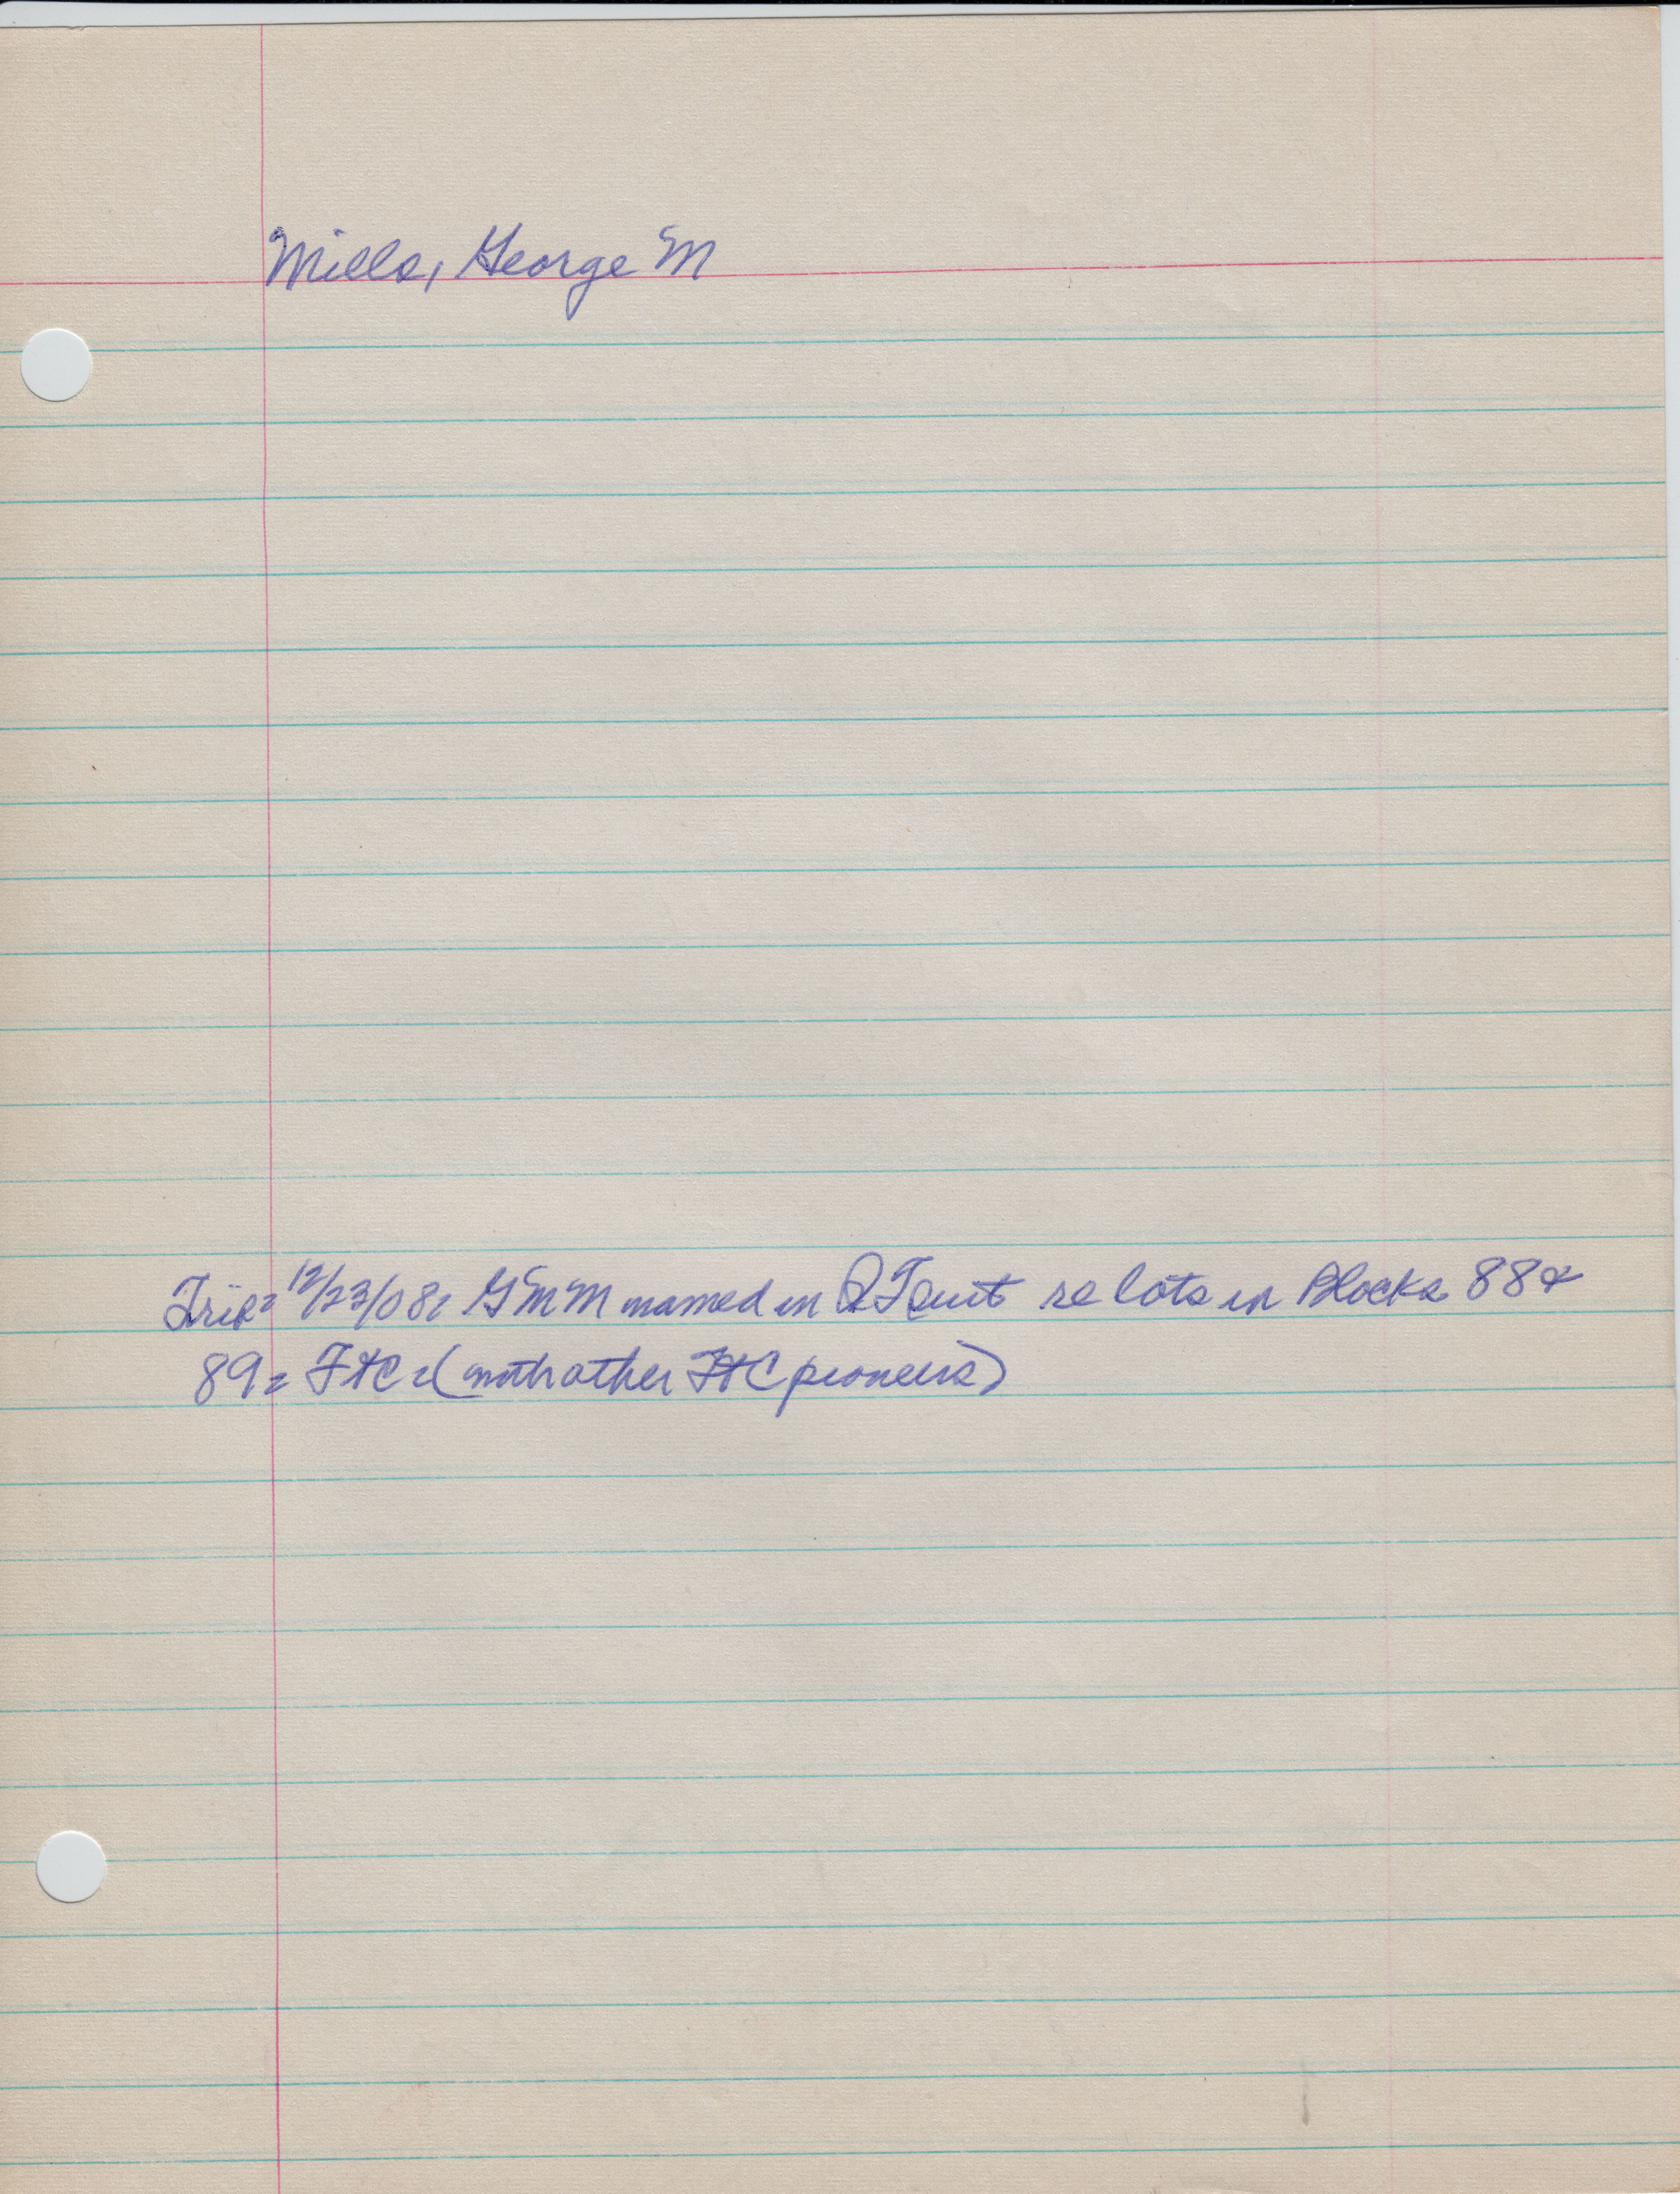 Mills, George M
Trib= 12/23/08= GMM named in QT suit re lots in Blocks 88 &
89= FtC= (with other FtC pioneers)